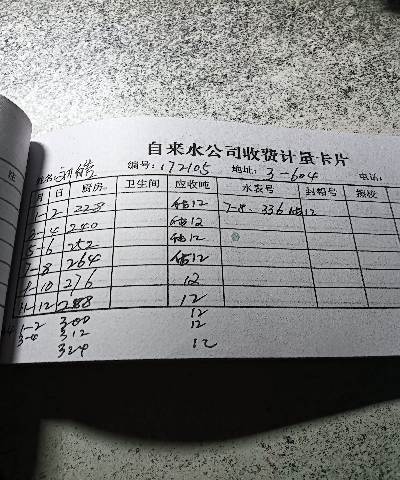 自来水公司收费计量卡片
姓名: 编号: 172105 地址: 3-604 电话:
月 日 厨房 卫生间 应收吨 水表号 封铅号 报校
1-2 228 估12 7-8. 336 估12
3-4 240 估12
5-6 252 估12
7-8 264 估12
9-10 276 12
11-12 288 12
1-2 300 12
3-4 312 12
324 12